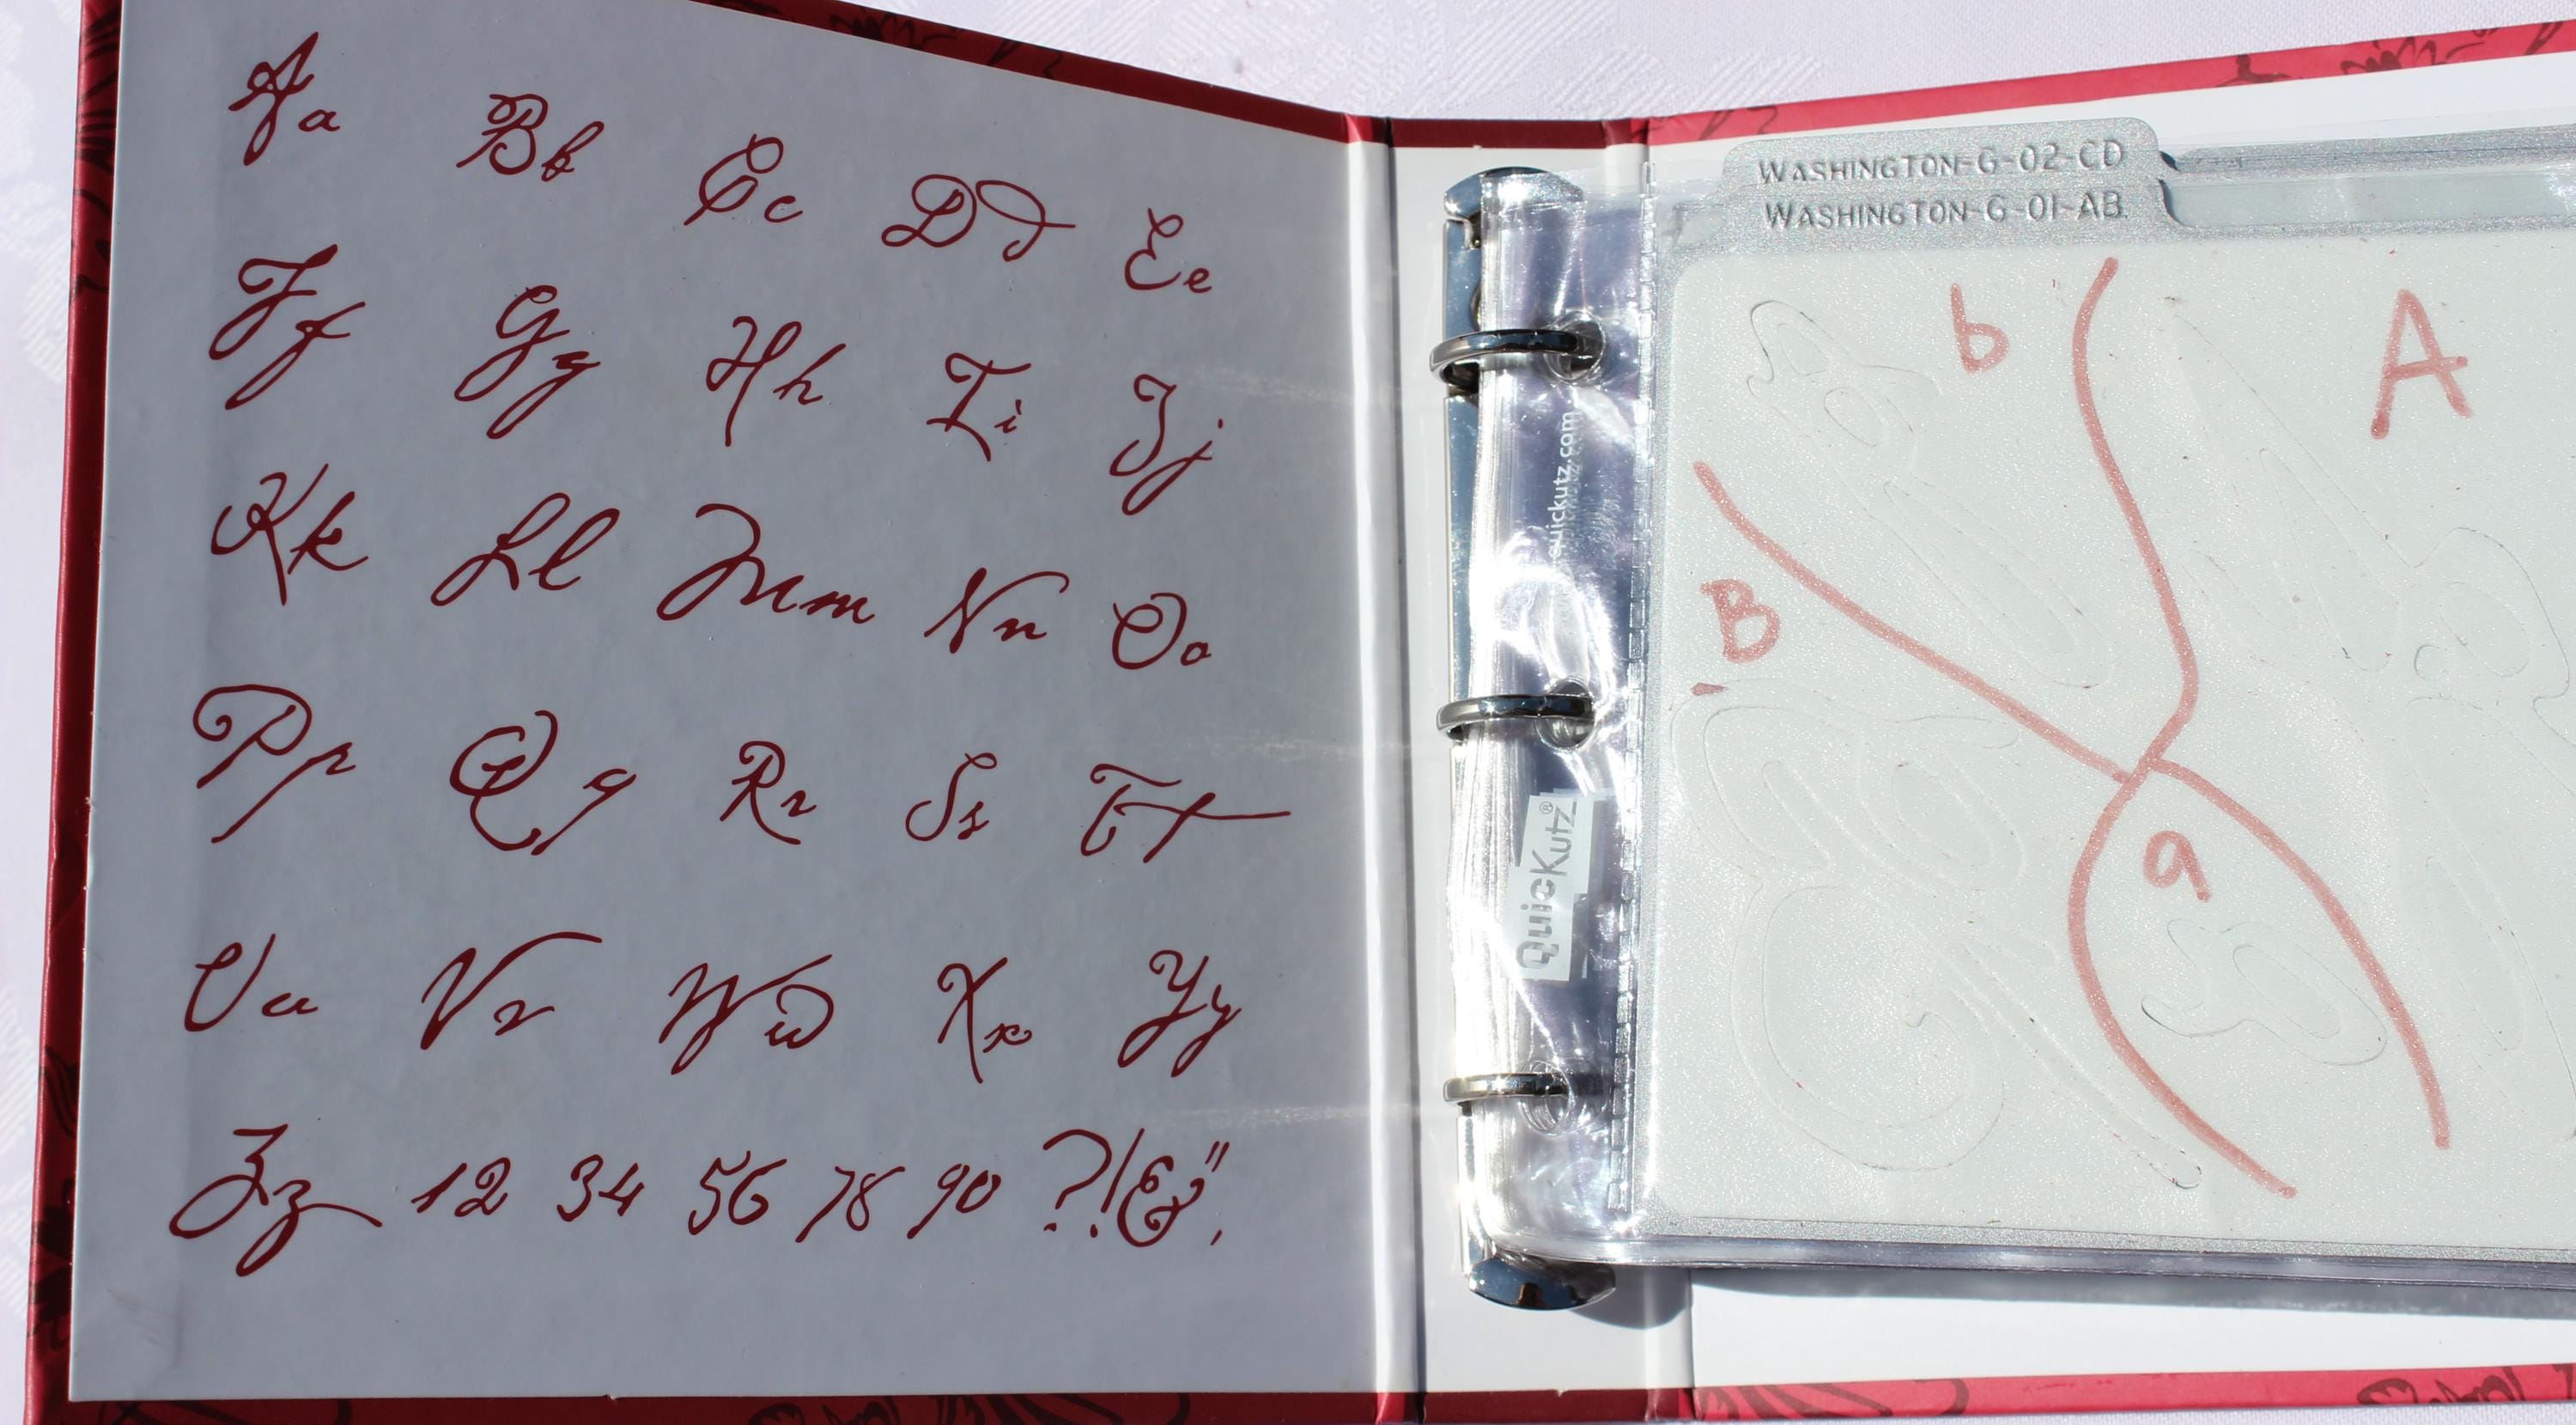 Aa Bb Cc Dd Ee
Ff Gg Hh Ii Jj
Kk Ll Mm Nn Oo
Pp Qq Rr Ss Tt
Uu Vv Ww Xx Yy
Zz 12 34 56 78 90 ?!&",
quickutz.com
QuicKutz®
WASHINGTON-G-02-CD
WASHINGTON-G-01-AB
b A
B
a